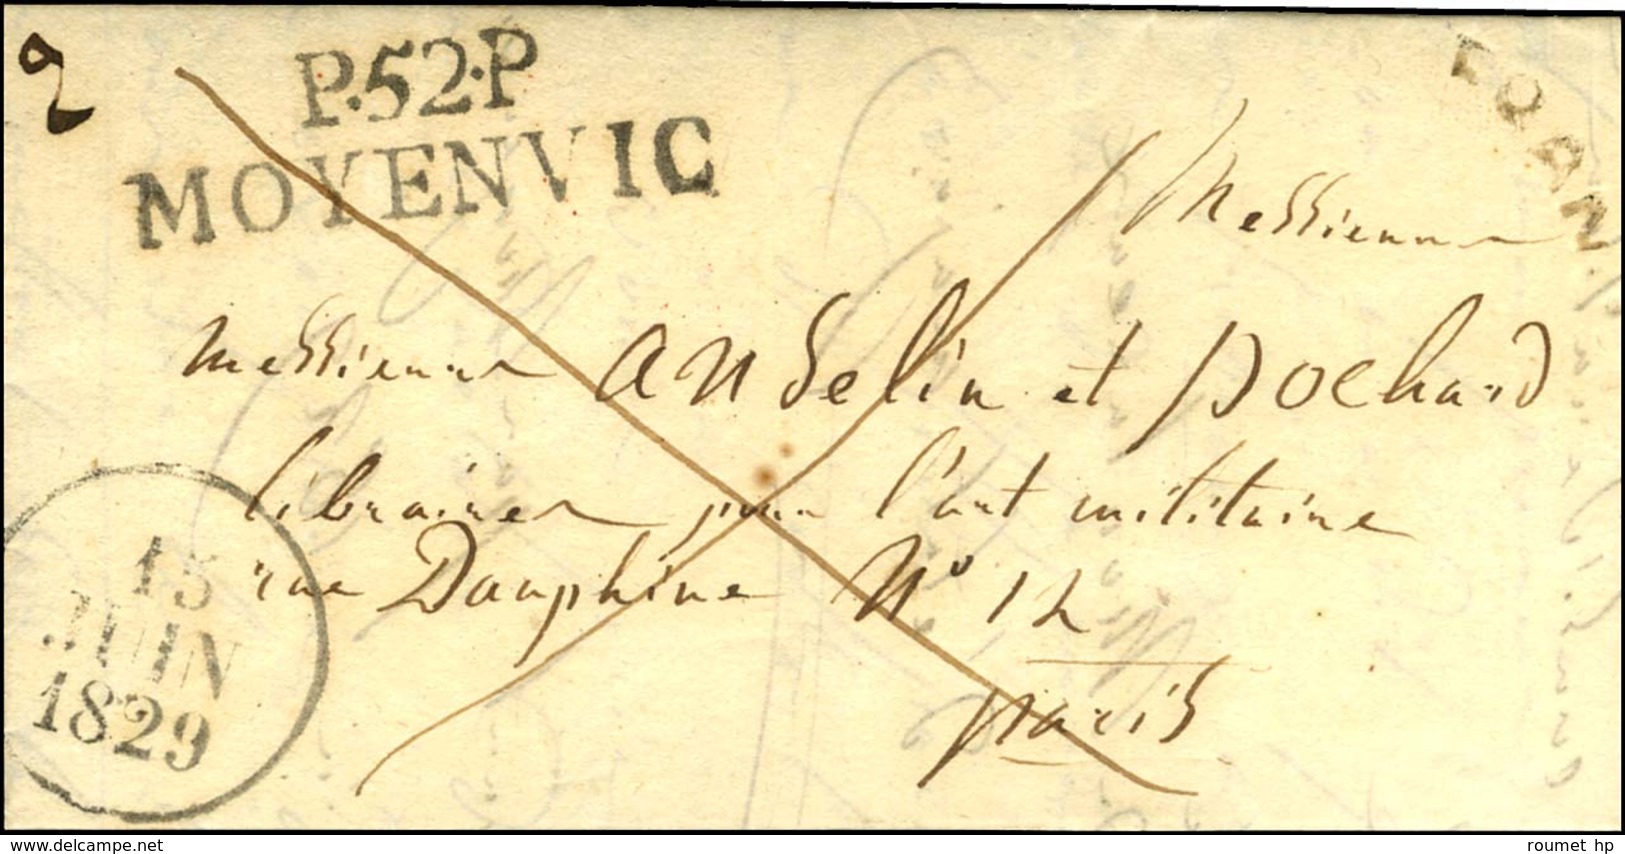 2
P.52.P
MOYENVIC
FRAN
Messieurs
Messieurs Anselin et pochard
libraires pour l'art militaire
rue Dauphine N° 12
paris
15
JUIN
1829
www.delcampe.net
roumet hp